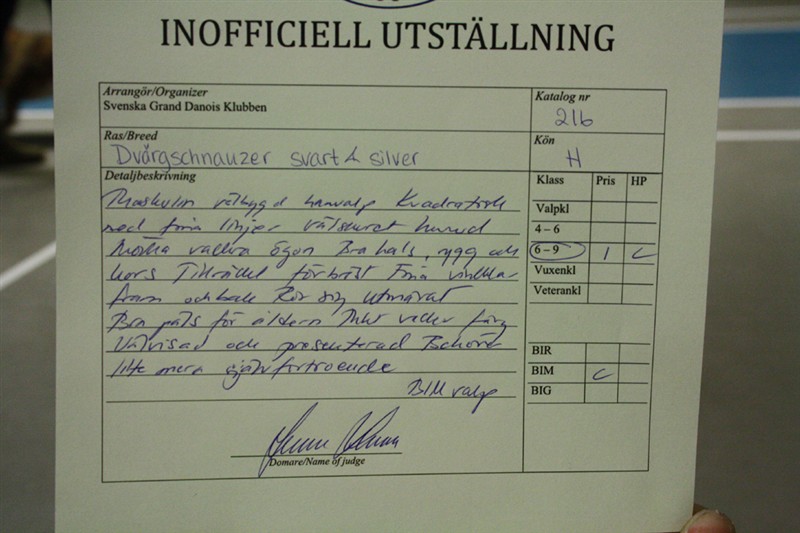 INOFFICIELL UTSTÄLLNING
Arrangör/Organizer
Svenska Grand Danois Klubben
Katalog nr
216
Ras/Breed
Dvärgschnauzer svart & silver
Kön
H
Detaljbeskrivning
Maskulin välbyggd hanvalp Kvadratisk
med fina linjer välskuret huvud
Mörka vackra ögon Bra hals, rygg och
kors Tillräckl förbröst Fina vinklar
fram och bak Rör sig utmärkt
Bra päls för åldern Mkt vacker färg
Välvisad och presenterad Behöver
lite mera självförtroende
BIM valp
Klass Pris HP
Valpkl
4-6
6-9 1
Vuxenkl
Veterankl
BIR
BIM
BIG
Domare/Name of judge